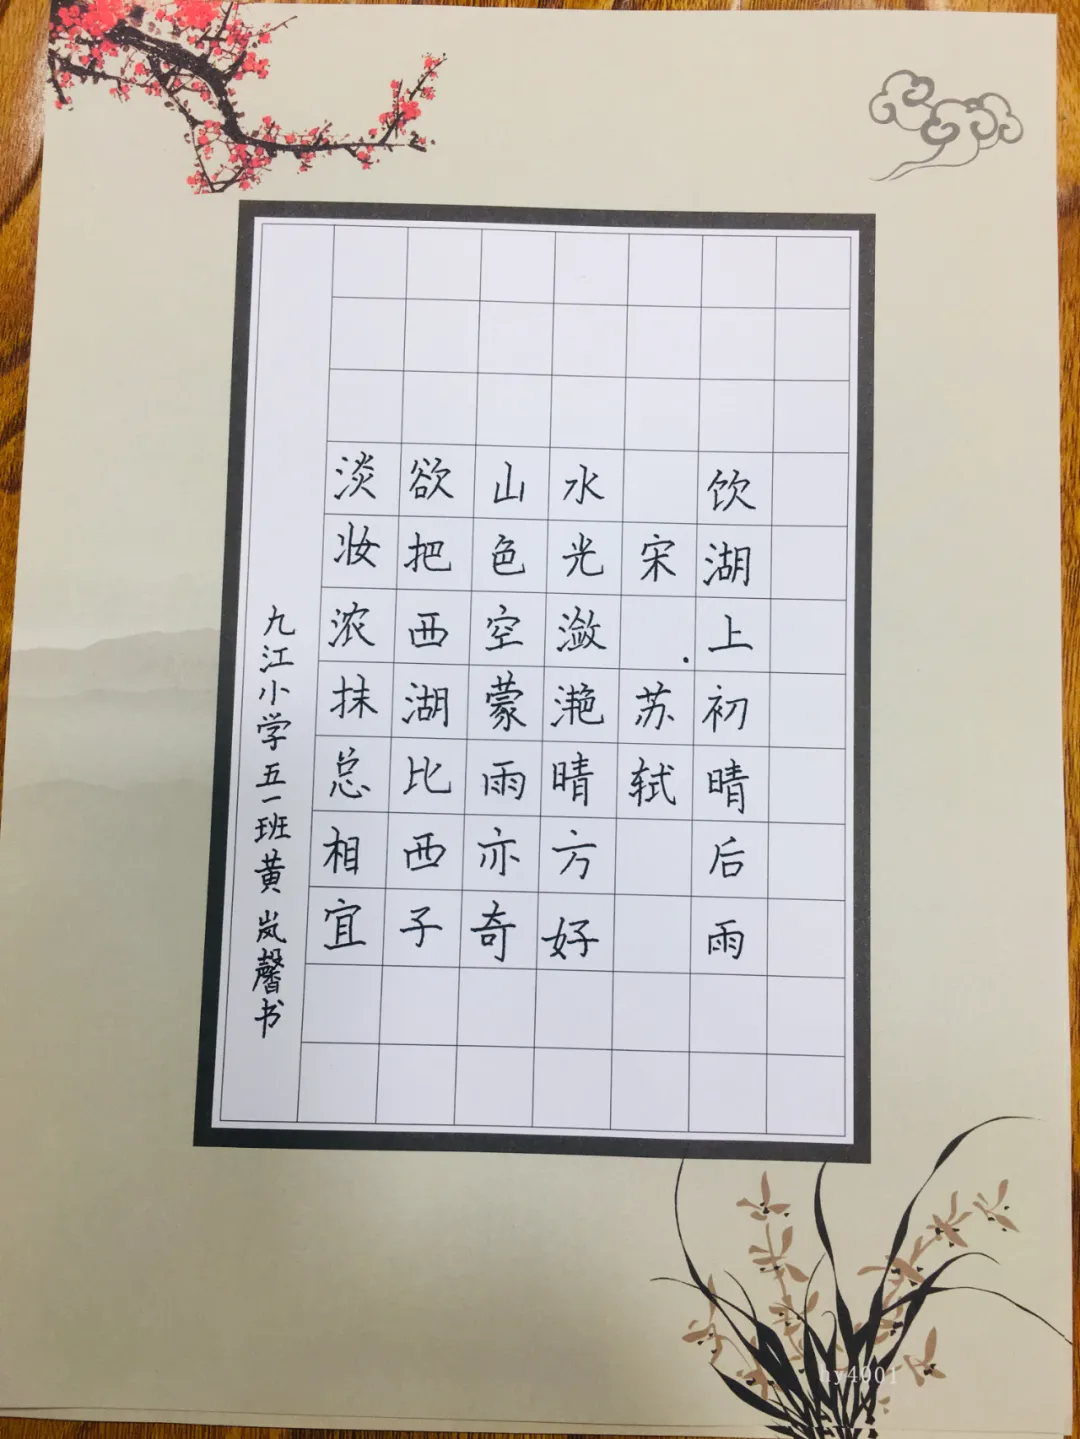 饮湖上初晴后雨
宋·苏轼
水光潋滟晴方好
山色空蒙雨亦奇
欲把西湖比西子
淡妆浓抹总相宜
九江小学五一班黄岚馨书
hy4001